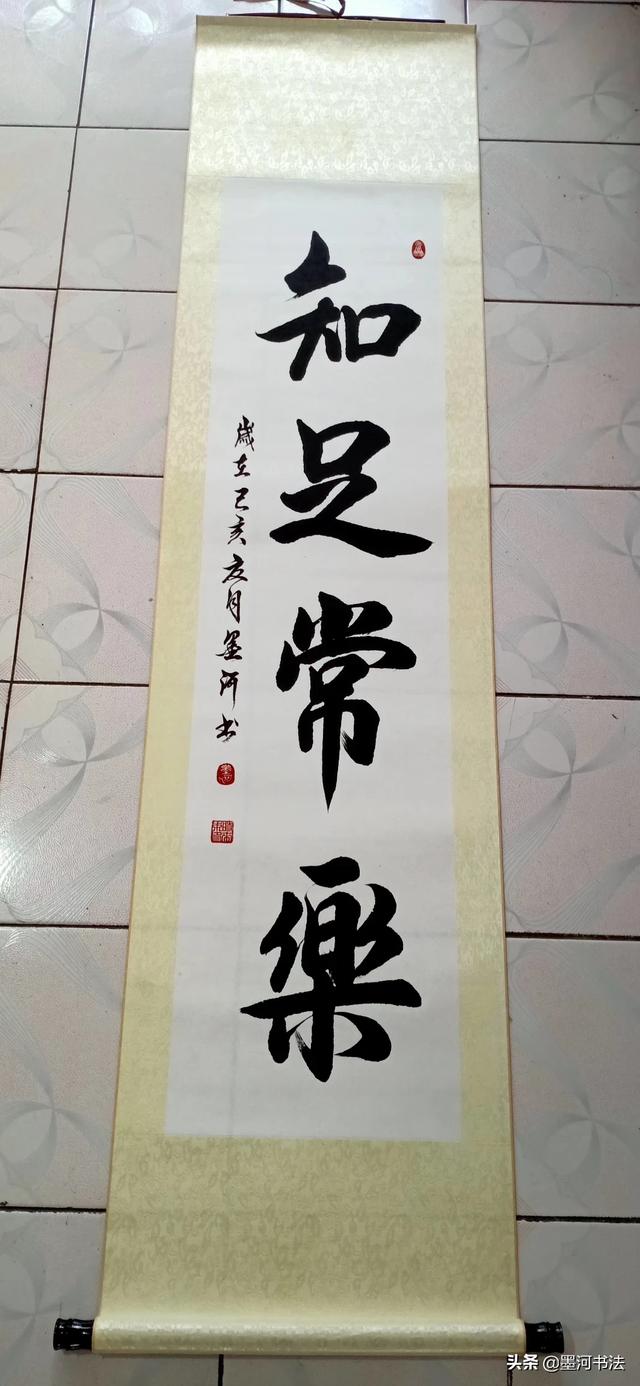 知足常樂
歲在己亥夏月墨河书
头条 @墨河书法